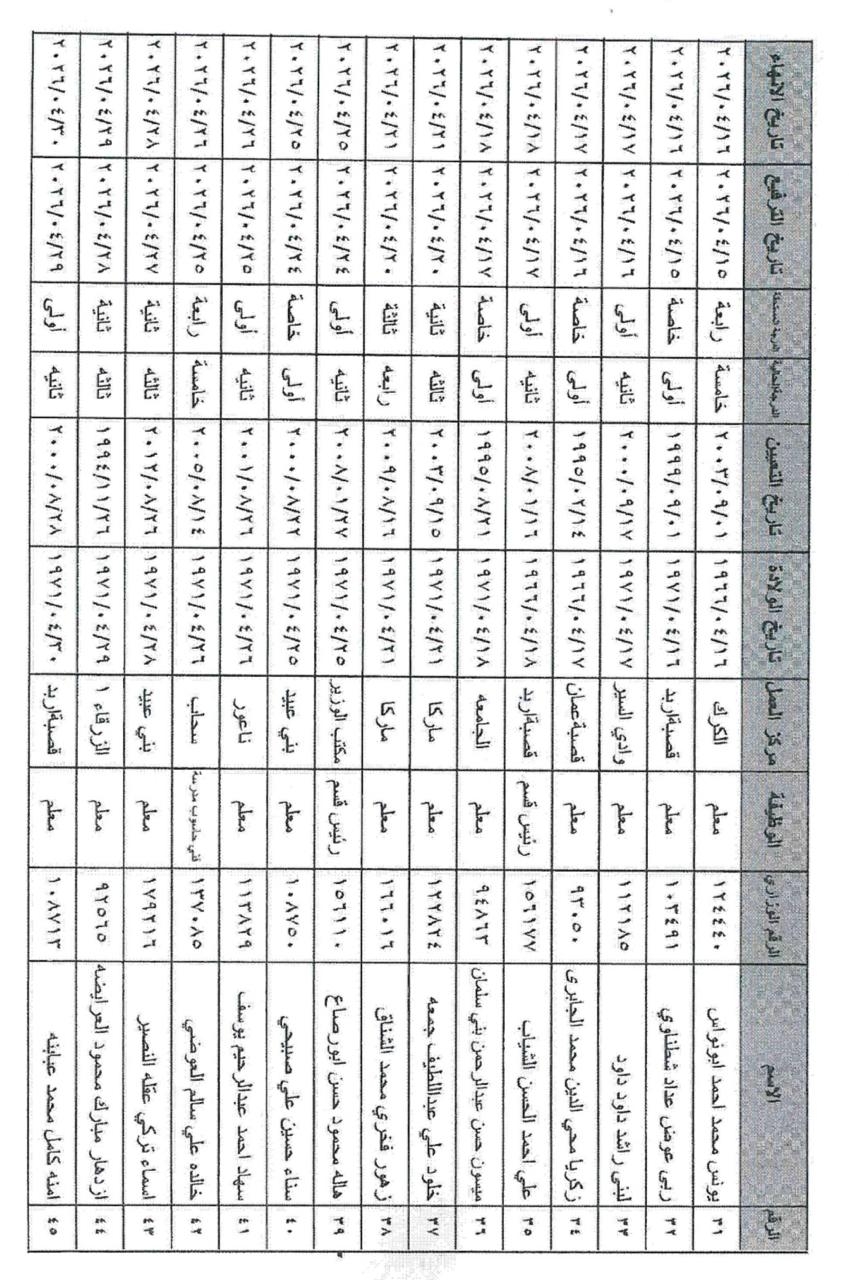 الرقم الاسم الرقم الوزاري الوظيفة مركز العمل تاريخ الولادة تاريخ التعيين الدرجة الحالية الدرجة المستحقة تاريخ الترفيع تاريخ الانهاء
٣١ يونس محمد احمد ابونواس ١٢٤٤٤٠ معلم الكرك ١٩٦٦/٠٤/١٦ ٢٠٠٣/٠٩/٠١ خامسة رابعة ٢٠٢٦/٠٤/١٥ ٢٠٢٦/٠٤/١٦
٣٢ ربى عوض عداد شطناوي ١٠٣٤٩١ معلم قصبةاربد ١٩٧١/٠٤/١٦ ١٩٩٩/٠٩/٠١ أولى خاصة ٢٠٢٦/٠٤/١٥ ٢٠٢٦/٠٤/١٦
٣٣ لبنى راشد داود داود ١١٢١٨٥ معلم وادي السير ١٩٧١/٠٤/١٧ ٢٠٠٠/٠٩/١٧ ثانيه أولى ٢٠٢٦/٠٤/١٦ ٢٠٢٦/٠٤/١٧
٣٤ زكريا محي الدين محمد الجابرى ٩٣٠٥٠ معلم قصبةعمان ١٩٦٦/٠٤/١٧ ١٩٩٥/٠٢/١٤ أولى خاصة ٢٠٢٦/٠٤/١٦ ٢٠٢٦/٠٤/١٧
٣٥ علي احمد الحسن الشياب ١٥٦١٧٧ رئيس قسم قصبةاربد ١٩٦٦/٠٤/١٨ ٢٠٠٨/٠١/١٦ ثانيه أولى ٢٠٢٦/٠٤/١٧ ٢٠٢٦/٠٤/١٨
٣٦ ميسون حسن عبدالرحمن بني سلمان ٩٤٨٦٣ معلم الجامعه ١٩٧١/٠٤/١٨ ١٩٩٥/٠٨/٢١ أولى خاصة ٢٠٢٦/٠٤/١٧ ٢٠٢٦/٠٤/١٨
٣٧ خلود علي عبداللطيف جمعه ١٢٢٨٢٤ معلم ماركا ١٩٧١/٠٤/٢١ ٢٠٠٣/٠٩/١٥ ثالثه ثانية ٢٠٢٦/٠٤/٢٠ ٢٠٢٦/٠٤/٢١
٣٨ زهور فخري محمد الشناق ١٦٦٠١٦ معلم ماركا ١٩٧١/٠٤/٢١ ٢٠٠٩/٠٨/١٦ رابعه ثالثة ٢٠٢٦/٠٤/٢٠ ٢٠٢٦/٠٤/٢١
٣٩ هاله محمود حسن ابورصاع ١٥٦١١٠ رئيس قسم مكتب الوزير ١٩٧١/٠٤/٢٥ ٢٠٠٨/٠١/٢٧ ثانيه أولى ٢٠٢٦/٠٤/٢٤ ٢٠٢٦/٠٤/٢٥
٤٠ سناء حسين علي صبيحي ١٠٨٧٥٠ معلم بني عبيد ١٩٧١/٠٤/٢٥ ٢٠٠٠/٠٨/٢٢ أولى خاصة ٢٠٢٦/٠٤/٢٤ ٢٠٢٦/٠٤/٢٥
٤١ سهاد احمد عبدالرحيم يوسف ١١٣٨٢٩ معلم ناعور ١٩٧١/٠٤/٢٦ ٢٠٠١/٠٨/٢٦ ثانيه أولى ٢٠٢٦/٠٤/٢٥ ٢٠٢٦/٠٤/٢٦
٤٢ خالده علي سالم العوضي ١٣٧٠٨٥ فني حاسوب مدرسة سحاب ١٩٧١/٠٤/٢٦ ٢٠٠٥/٠٨/١٤ خامسة رابعة ٢٠٢٦/٠٤/٢٥ ٢٠٢٦/٠٤/٢٦
٤٣ اسماء تركي عقله النصير ١٧٩٢١٦ معلم بني عبيد ١٩٧١/٠٤/٢٨ ٢٠١٢/٠٨/٢٦ ثالثه ثانية ٢٠٢٦/٠٤/٢٧ ٢٠٢٦/٠٤/٢٨
٤٤ ازدهار مبارك محمود العرايضه ٩٢٥٦٥ معلم الزرقاء ١ ١٩٧١/٠٤/٢٩ ١٩٩٤/١١/٢٦ ثالثه ثانية ٢٠٢٦/٠٤/٢٨ ٢٠٢٦/٠٤/٢٩
٤٥ امنه كامل محمد عبابنه ١٠٨٧١٣ معلم قصبةاربد ١٩٧١/٠٤/٣٠ ٢٠٠٠/٠٨/٢٨ ثانيه أولى ٢٠٢٦/٠٤/٢٩ ٢٠٢٦/٠٤/٣٠